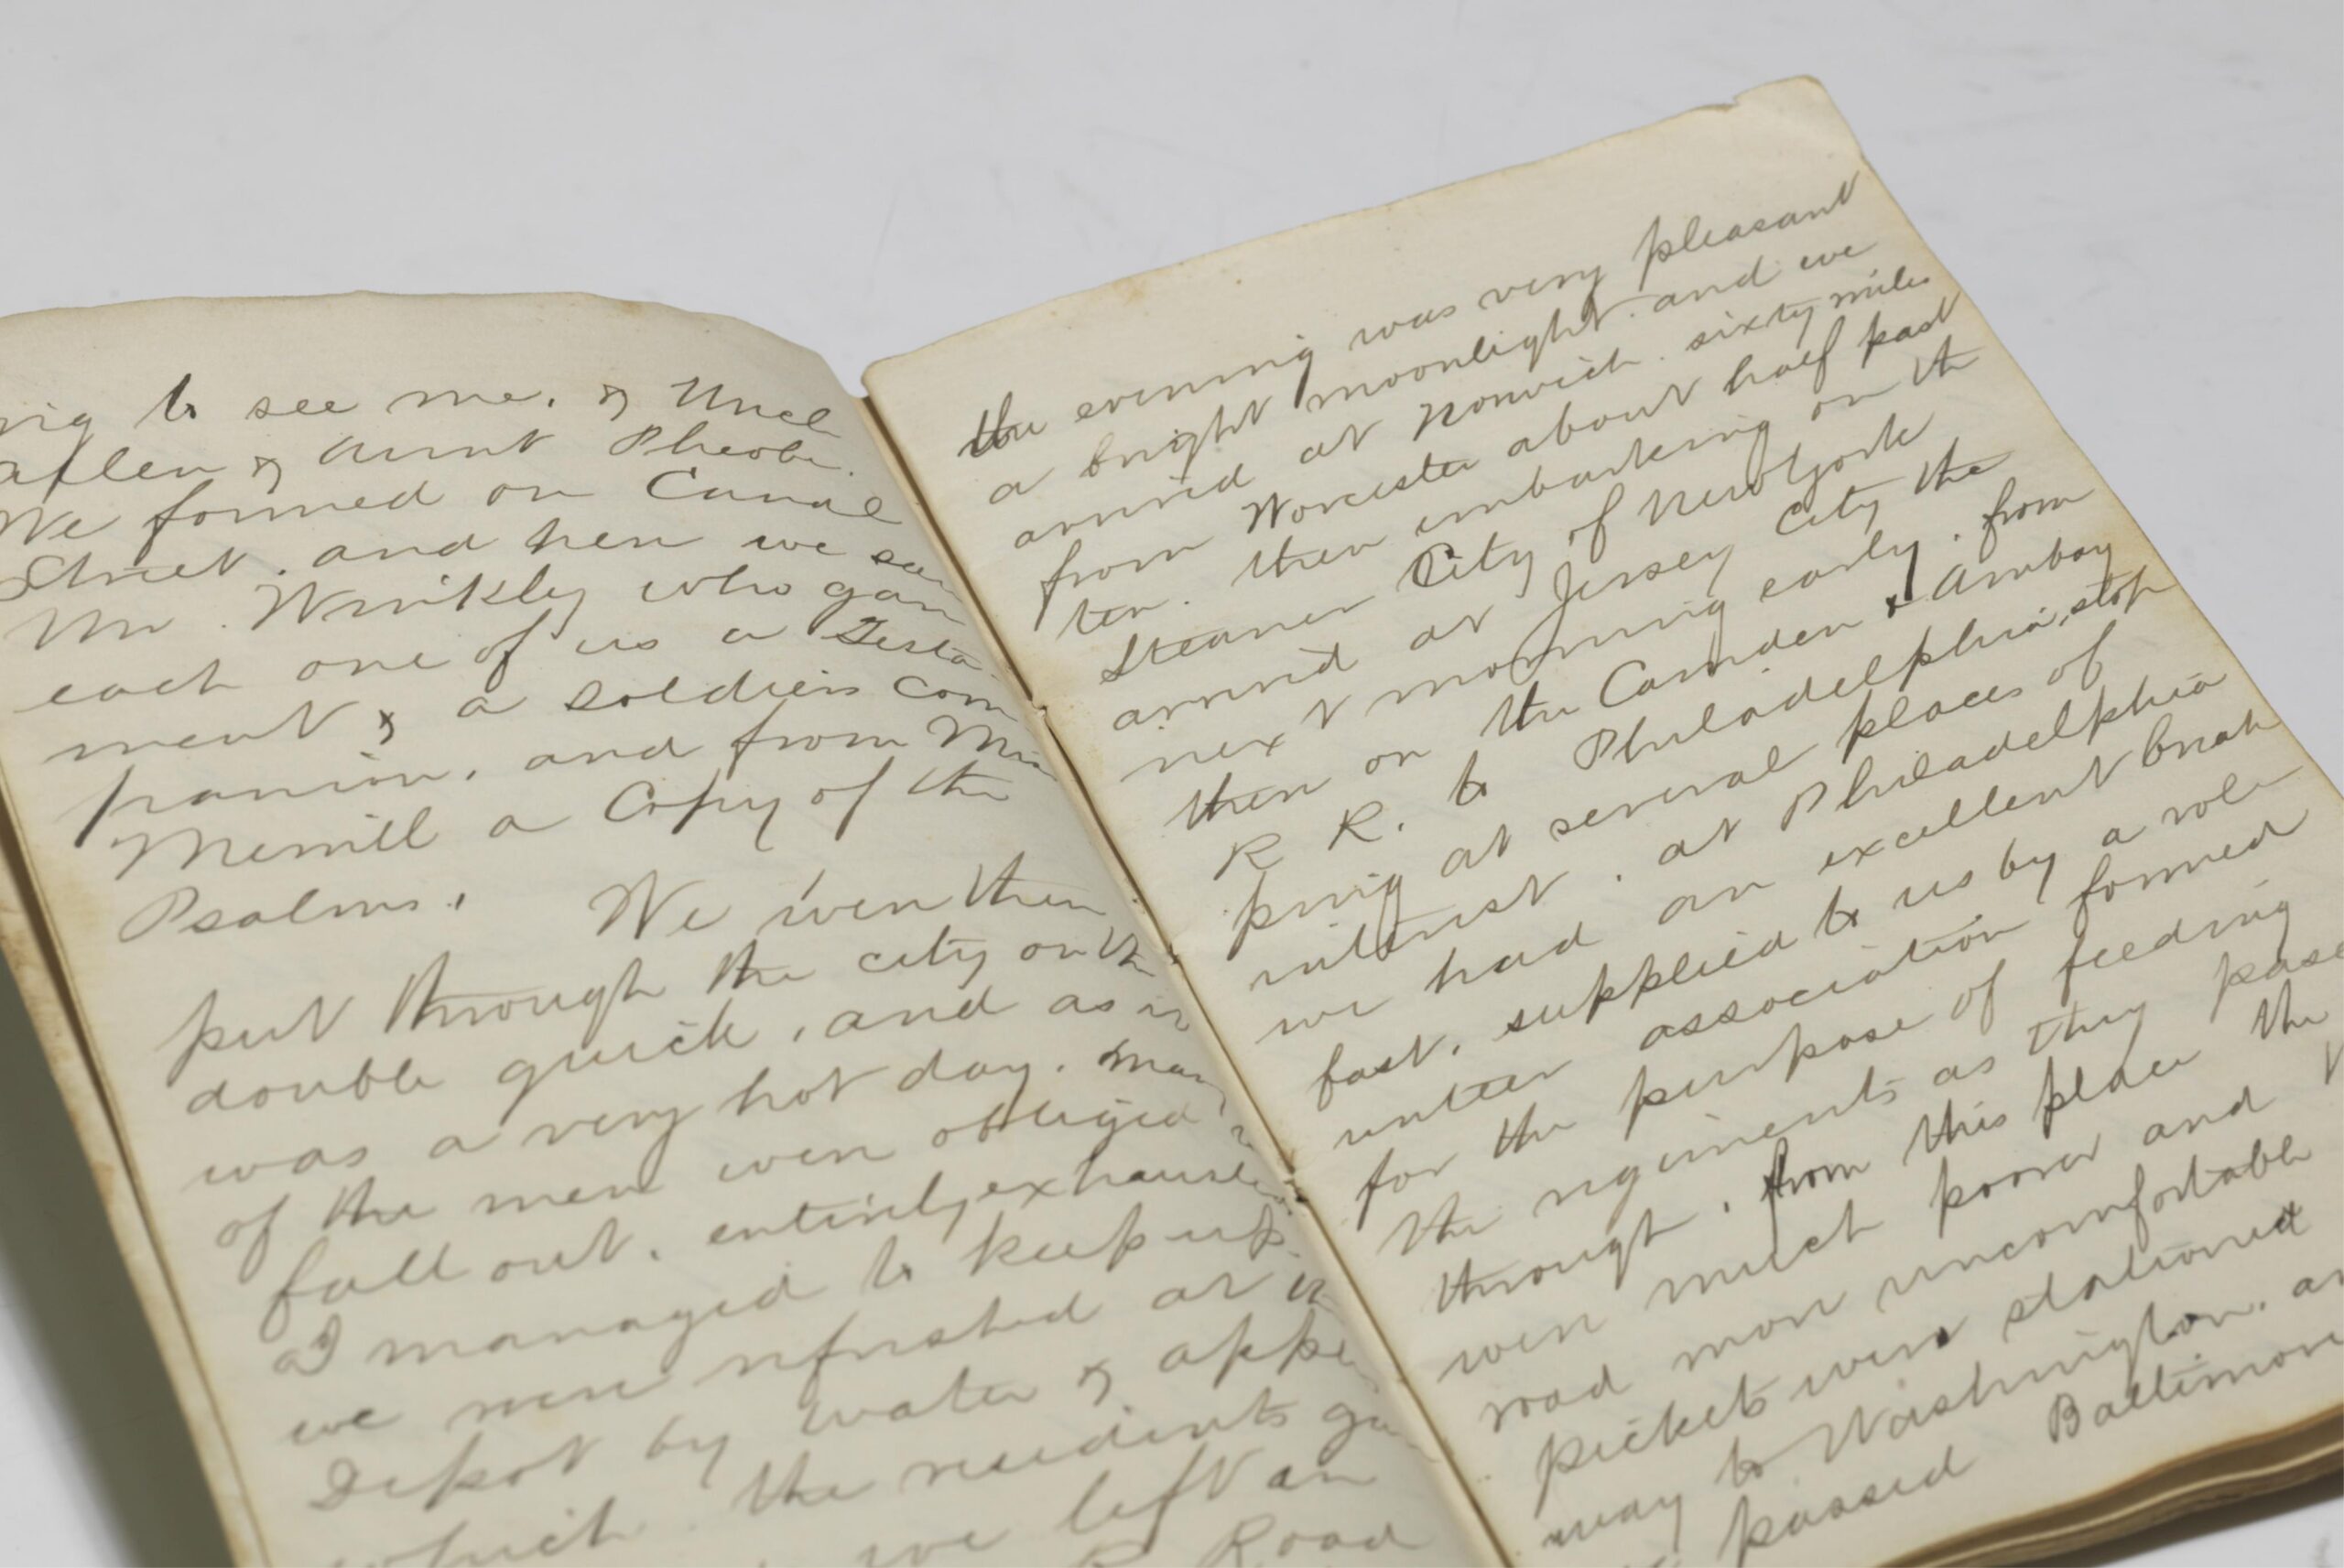 to see me. & Uncl
allen & Aunt Pheobe.
We formed on Canal
Street. and here we saw
Mr. Winkley who gave
each one of us a Testa
ment & a soldiers com
panion. and from Mr
Merrill a Copy of the
Psalms. We were then
put through the city on the
double quick, and as it
was a very hot day. many
of the men were obliged to
fall out. entirely exhausted
I managed to keep up.
we were refreshed at the
Depot by water & apples
which the residents ga
we left an
Road
the evening was very pleasant
a bright moonlight. and we
arrived at Norwich. sixty miles
from Worcester about half past
ten. then embarking on the
Steamer City of New York
arrived at Jersey City the
next morning early. from
then on the Camden & Amboy
R R. to Philadelphia, stop
ping at several places of
interest. at Philadelphia
we had an excellent break
fast, supplied to us by a vol
unteer association formed
for the purpose of feeding
the regiments as they pase
through. from this place the
were much poorer and
road more uncomfortable
pickets were stationed
way to Washington. an
passed Baltimore